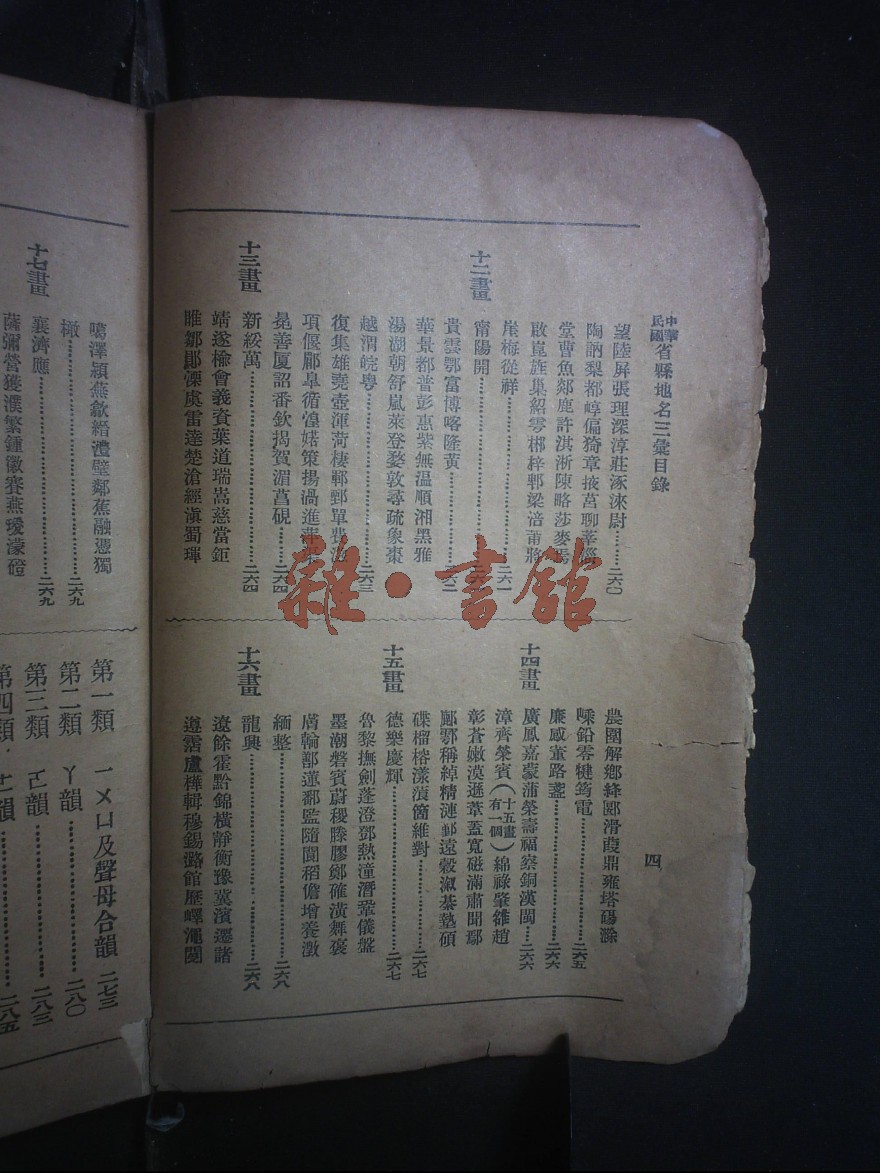 中華民國省縣地名三彙目錄
望陸屏張理深淳莊涿淶尉………二六〇
陶訥梨都崞偏猗章掖莒聊莘
堂曹魚郯鹿許淇淅陳略莎麥焉
啟崑旌巢紹雩郴梓郫梁涪莆將
崖梅從祥………二六一
十二畫
甯陽開………
貴雲鄂富博喀隆黃………二六二
華景都普彭惠紫無溫順湘黑雅
湯湖朝舒嵐萊登婺敦尋疏象棗
越渭皖粵………二六三
復集雄堯壺渾菏棲鄆鄄單費
項偃郾皐循惶婼策揚渦進
堯善厦詔番欽揭賀湄菖硯………二六四
新綏萬………二六四
十三畫
靖遂榆會義資葉道瑞嵩慈當鉅
睢鄒鄖溧虞雷達楚滄經滇蜀琿
農圍解鄉絳圓滑葭鼎雍塔碭滁
嵊鉛零犍筠電………二六五
廉威萬路盞………二六六
十四畫
廣鳳嘉蒙蒲榮壽福察銅漢閩………二六六
漳齊榮賓(十五畫有一個)綿祿肇雒趙
彰蒼嫩漠遜葦蓋寬磁滿肅聞鄢
鄲鄠稱綽精漣鄞遠穀漵綦墊碩
碟榴榕漾滇箇維對………二六七
十五畫
德樂慶輝………二六七
魯黎撫劍蓬澄鄧熱潼潛鞏儀盤
墨潮磐賓蔚稷滕膠鄭確潢舞褒
膚輪鄯蓮鄱監隨閬稻儋增養澂
緬整………二六八
十六畫
龍興………二六八
遼餘霍黔錦橫靜衡豫冀濱遷諸
遵霑盧樺輯穆錫潞館歷嶧澠閿
噶澤潁燕歙縉澧璧鄰蕉融憑獨
橄………二六九
十七畫
襄濟應………二六九
薩彌營獲濮繁鍾徽賽燕璦濛磴
第一類 ㄧㄨㄩ及聲母合韻 二七三
第二類 ㄚ韻………二八〇
第三類 ㄛ韻………二八三
第四類 ㄜ韻………二八五
四
雜·書館